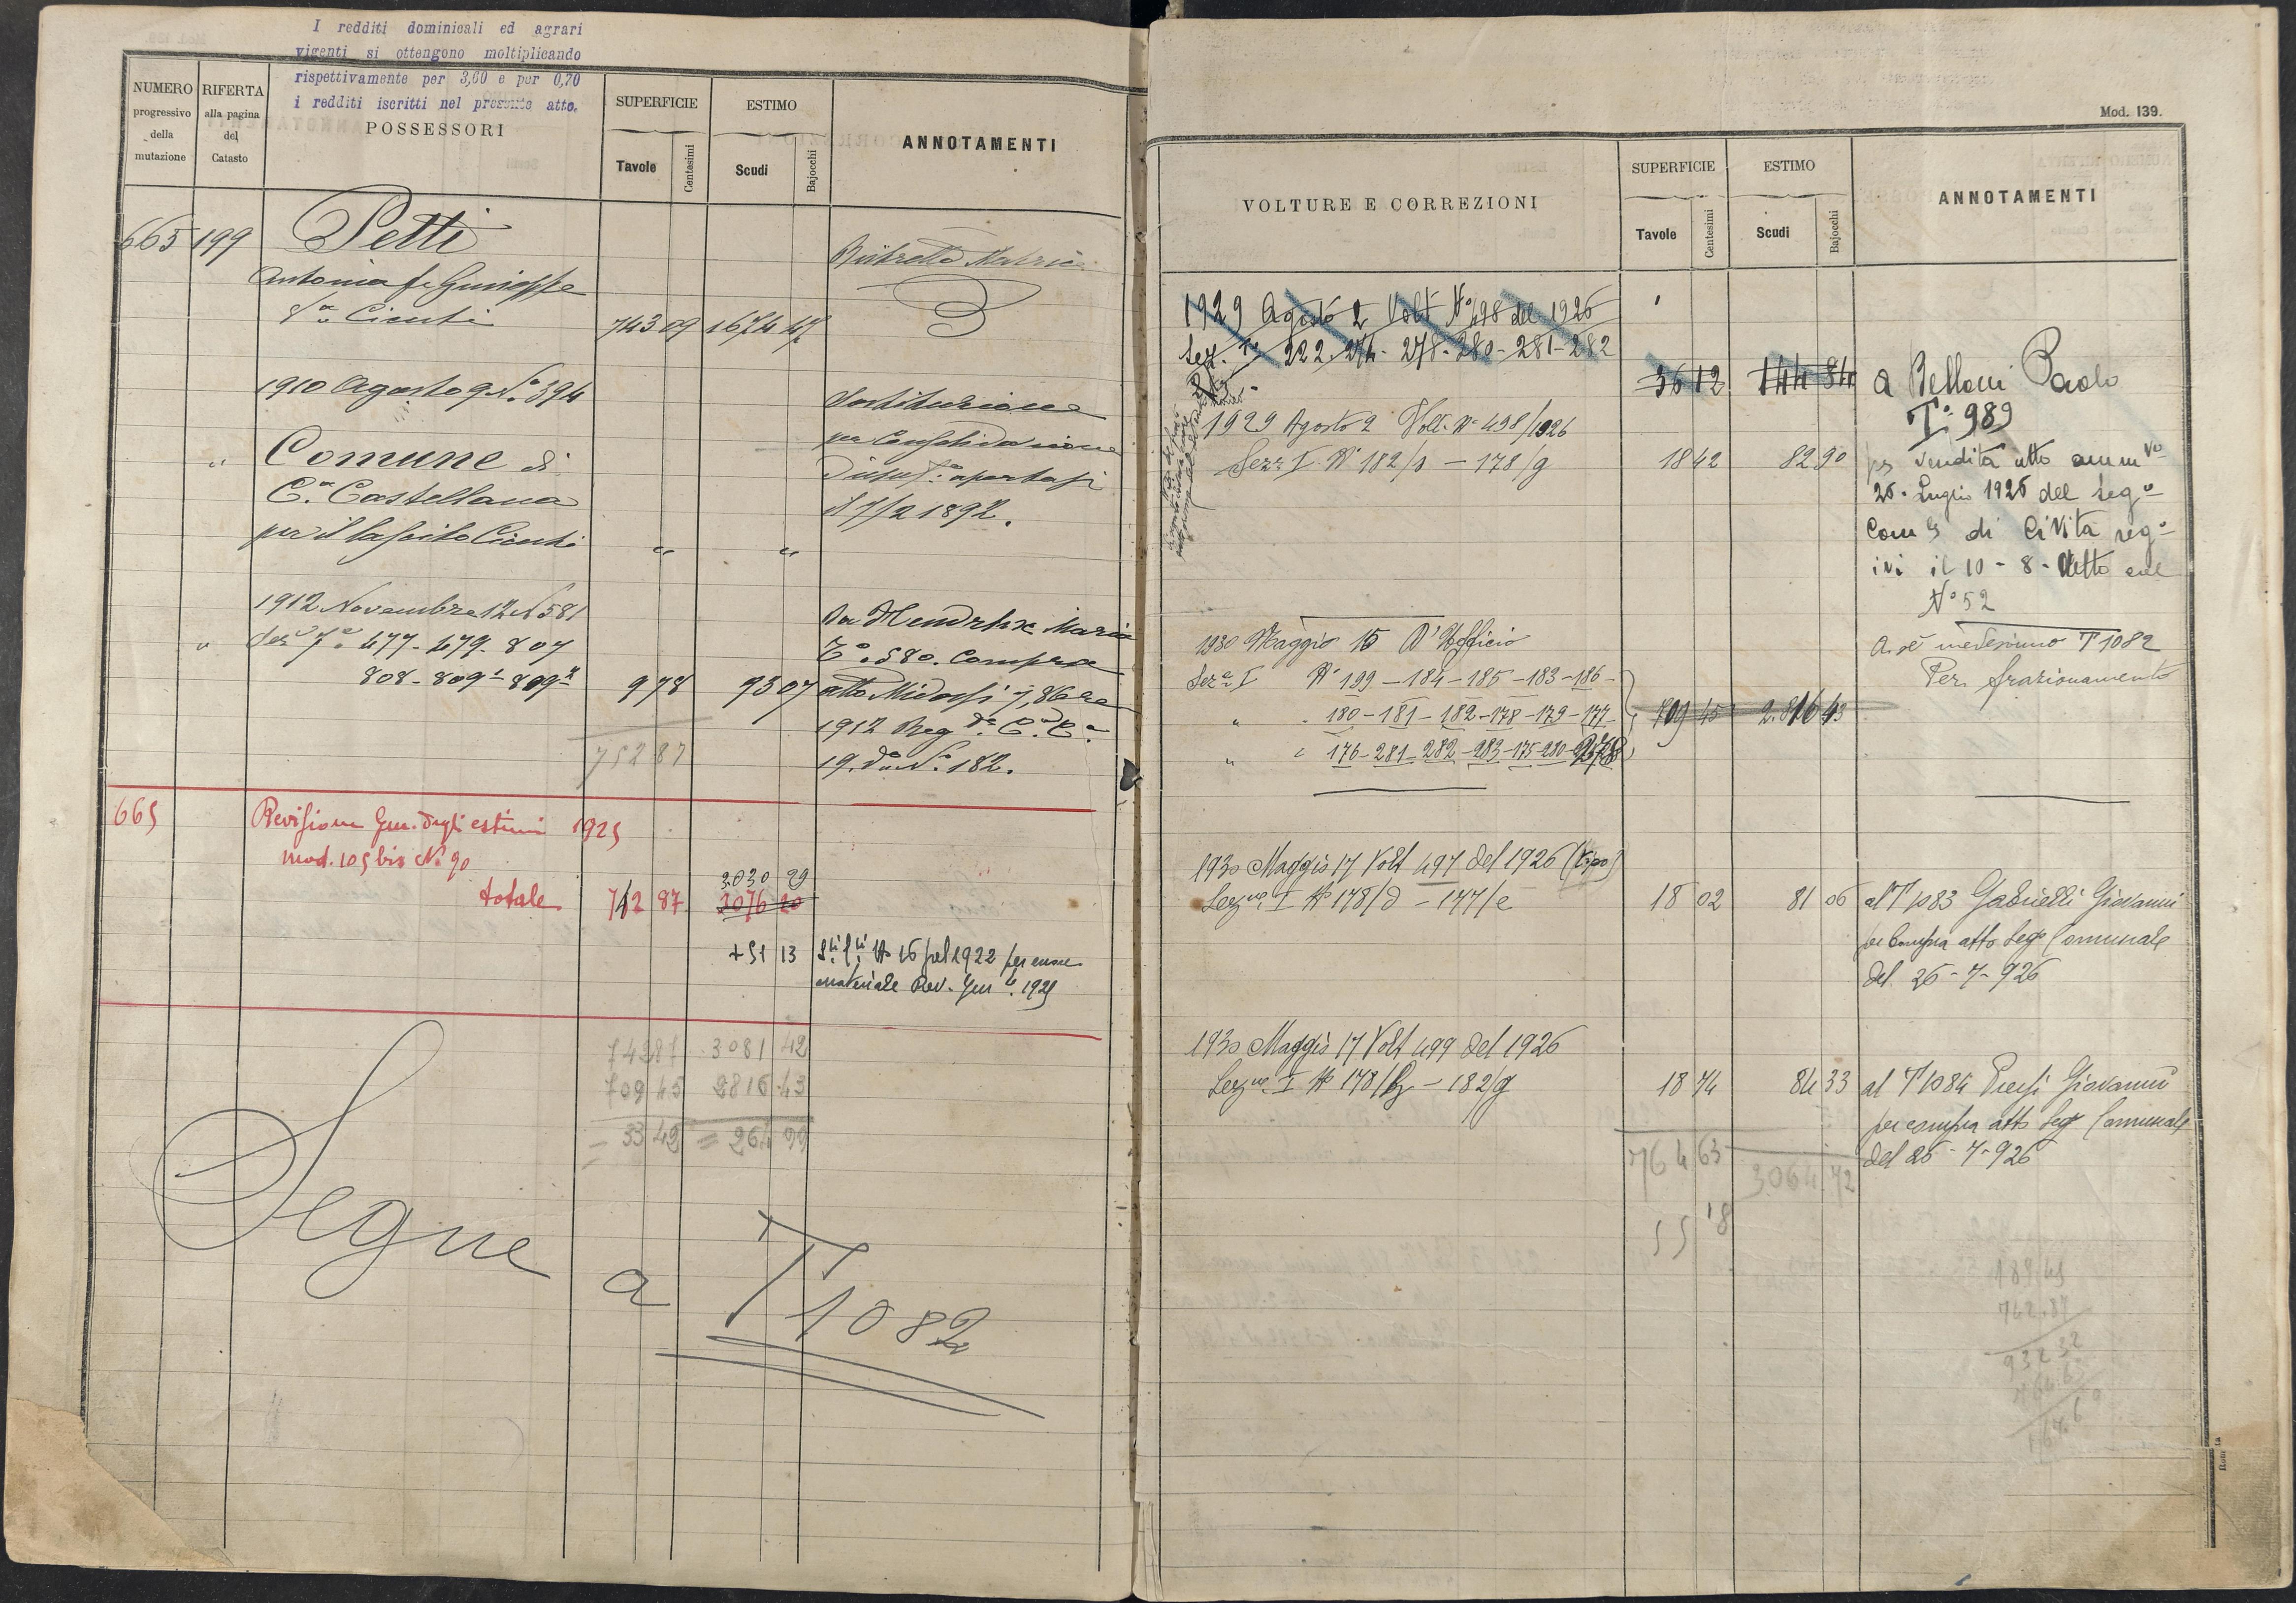 I redditi dominicali ed agrari
vigenti si ottengono moltiplicando
rispettivamente per 3,60 e per 0,70
i redditi iscritti nel presente atto.
NUMERO progressivo della mutazione
RIFERTA alla pagina del Catasto
POSSESSORI
SUPERFICIE
Tavole
Centesimi
ESTIMO
Scudi
Bajocchi
ANNOTAMENTI
665 199 Petti
Antonia fu Giuseppe
Cienti 743 09 1674 47
1910 Agosto 9 N.º 394 Sostituzione
per Consolidazione
" Comune di
C.ª Castellana
7/2 1892.
per il lascito Cienti " "
1912 Novembre 12 N 581 Da Hendrhx Maria
" 477 - 479 - 807 Tº. 580. Compra
808 - 809 - 809 9 78 93 07 atto Midossi
1912 Reg
752 87 19. N.º 182.
665 Revisione Gen. degli estimi 1925
Mod. 105 bis Nº 90
3030 29
totale 742 87 3076 20
+ 51 13 1922 per errore
materiale Rev. Gen. 1925
742 87 3081 42
709 45 2816 43
= 33 42 = 264 99
Segue a T 1082
Mod. 139.
VOLTURE E CORREZIONI
SUPERFICIE
Tavole
Centesimi
ESTIMO
Scudi
Bajocchi
ANNOTAMENTI
1929 Agosto 2 Volt Nº 498 del 1926
Sez. 1ª 222. 274 - 278 - 280 - 281 - 282
36 12 144 84 a Belloni Paolo
Tº 989
1929 Agosto 2 Volt. Nº 498/1926
Sezº I Nº 182/s - 178/g 18 42 82 90 per vendita atto amm.vo
26 - Luglio 1926 del Seg.º
Com.le di Civita reg.º
ivi il 10 - 8 - detto al
Nº 52
1930 Maggio 15 D'Ufficio A sè medesimo T 1082
Per frazionamento
Sezº I Nº 199 - 184 - 185 - 183 - 186 -
" 180 - 181 - 182 - 178 - 179 - 177 - 709 45 2.816 43
" " 176 - 281 - 282 - 283 - 175 - 280 -
1930 Maggio 17 Volt 497 del 1926 (tipo)
Sezne I Nº 178/d - 177/e 18 02 81 06 al T 1083 Gabrielli Giovanni
per compra atto Segº Comunale
del 26 - 7 - 926
1930 Maggio 17 Volt 499 del 1926
Sezne I Nº 178/ - 182/g 18 74 84 33 al T 1084 Giovanni
per compra atto Seg Comunale
del 26 - 7 - 926
764 63 3064 72
55 18
742.87
932 32